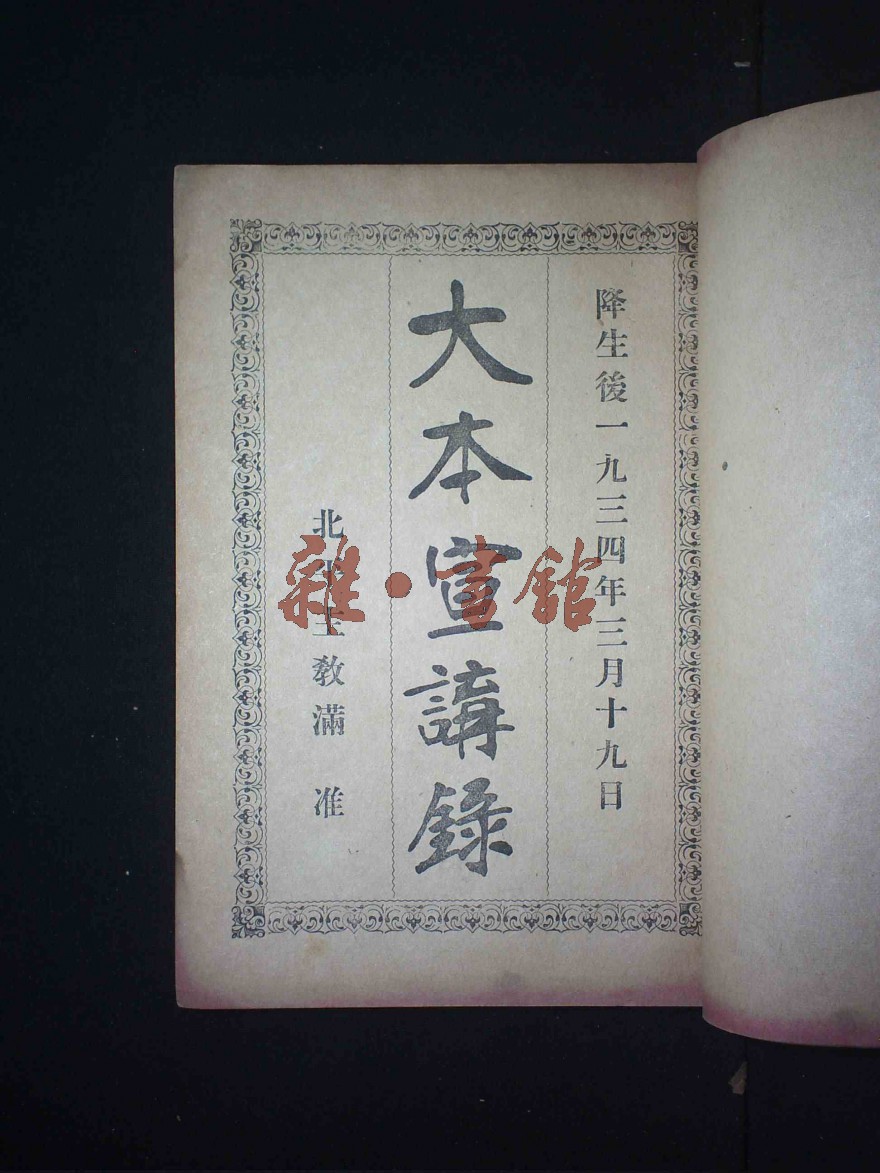 降生後一九三四年三月十九日
大本宣講錄
北平主教滿 准
雜·書館